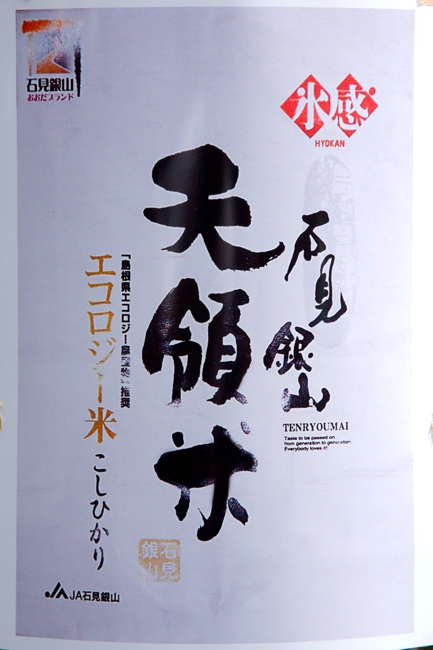 石見銀山
おおだブランド
氷感
HYOKAN
石見銀山
天領米
TENRYOUMAI
Taste to be passed on
from generation to generation
Everybody loves it!
「島根県エコロジー農産物」推奨
エコロジー米
こしひかり
石見
銀山
JA石見銀山